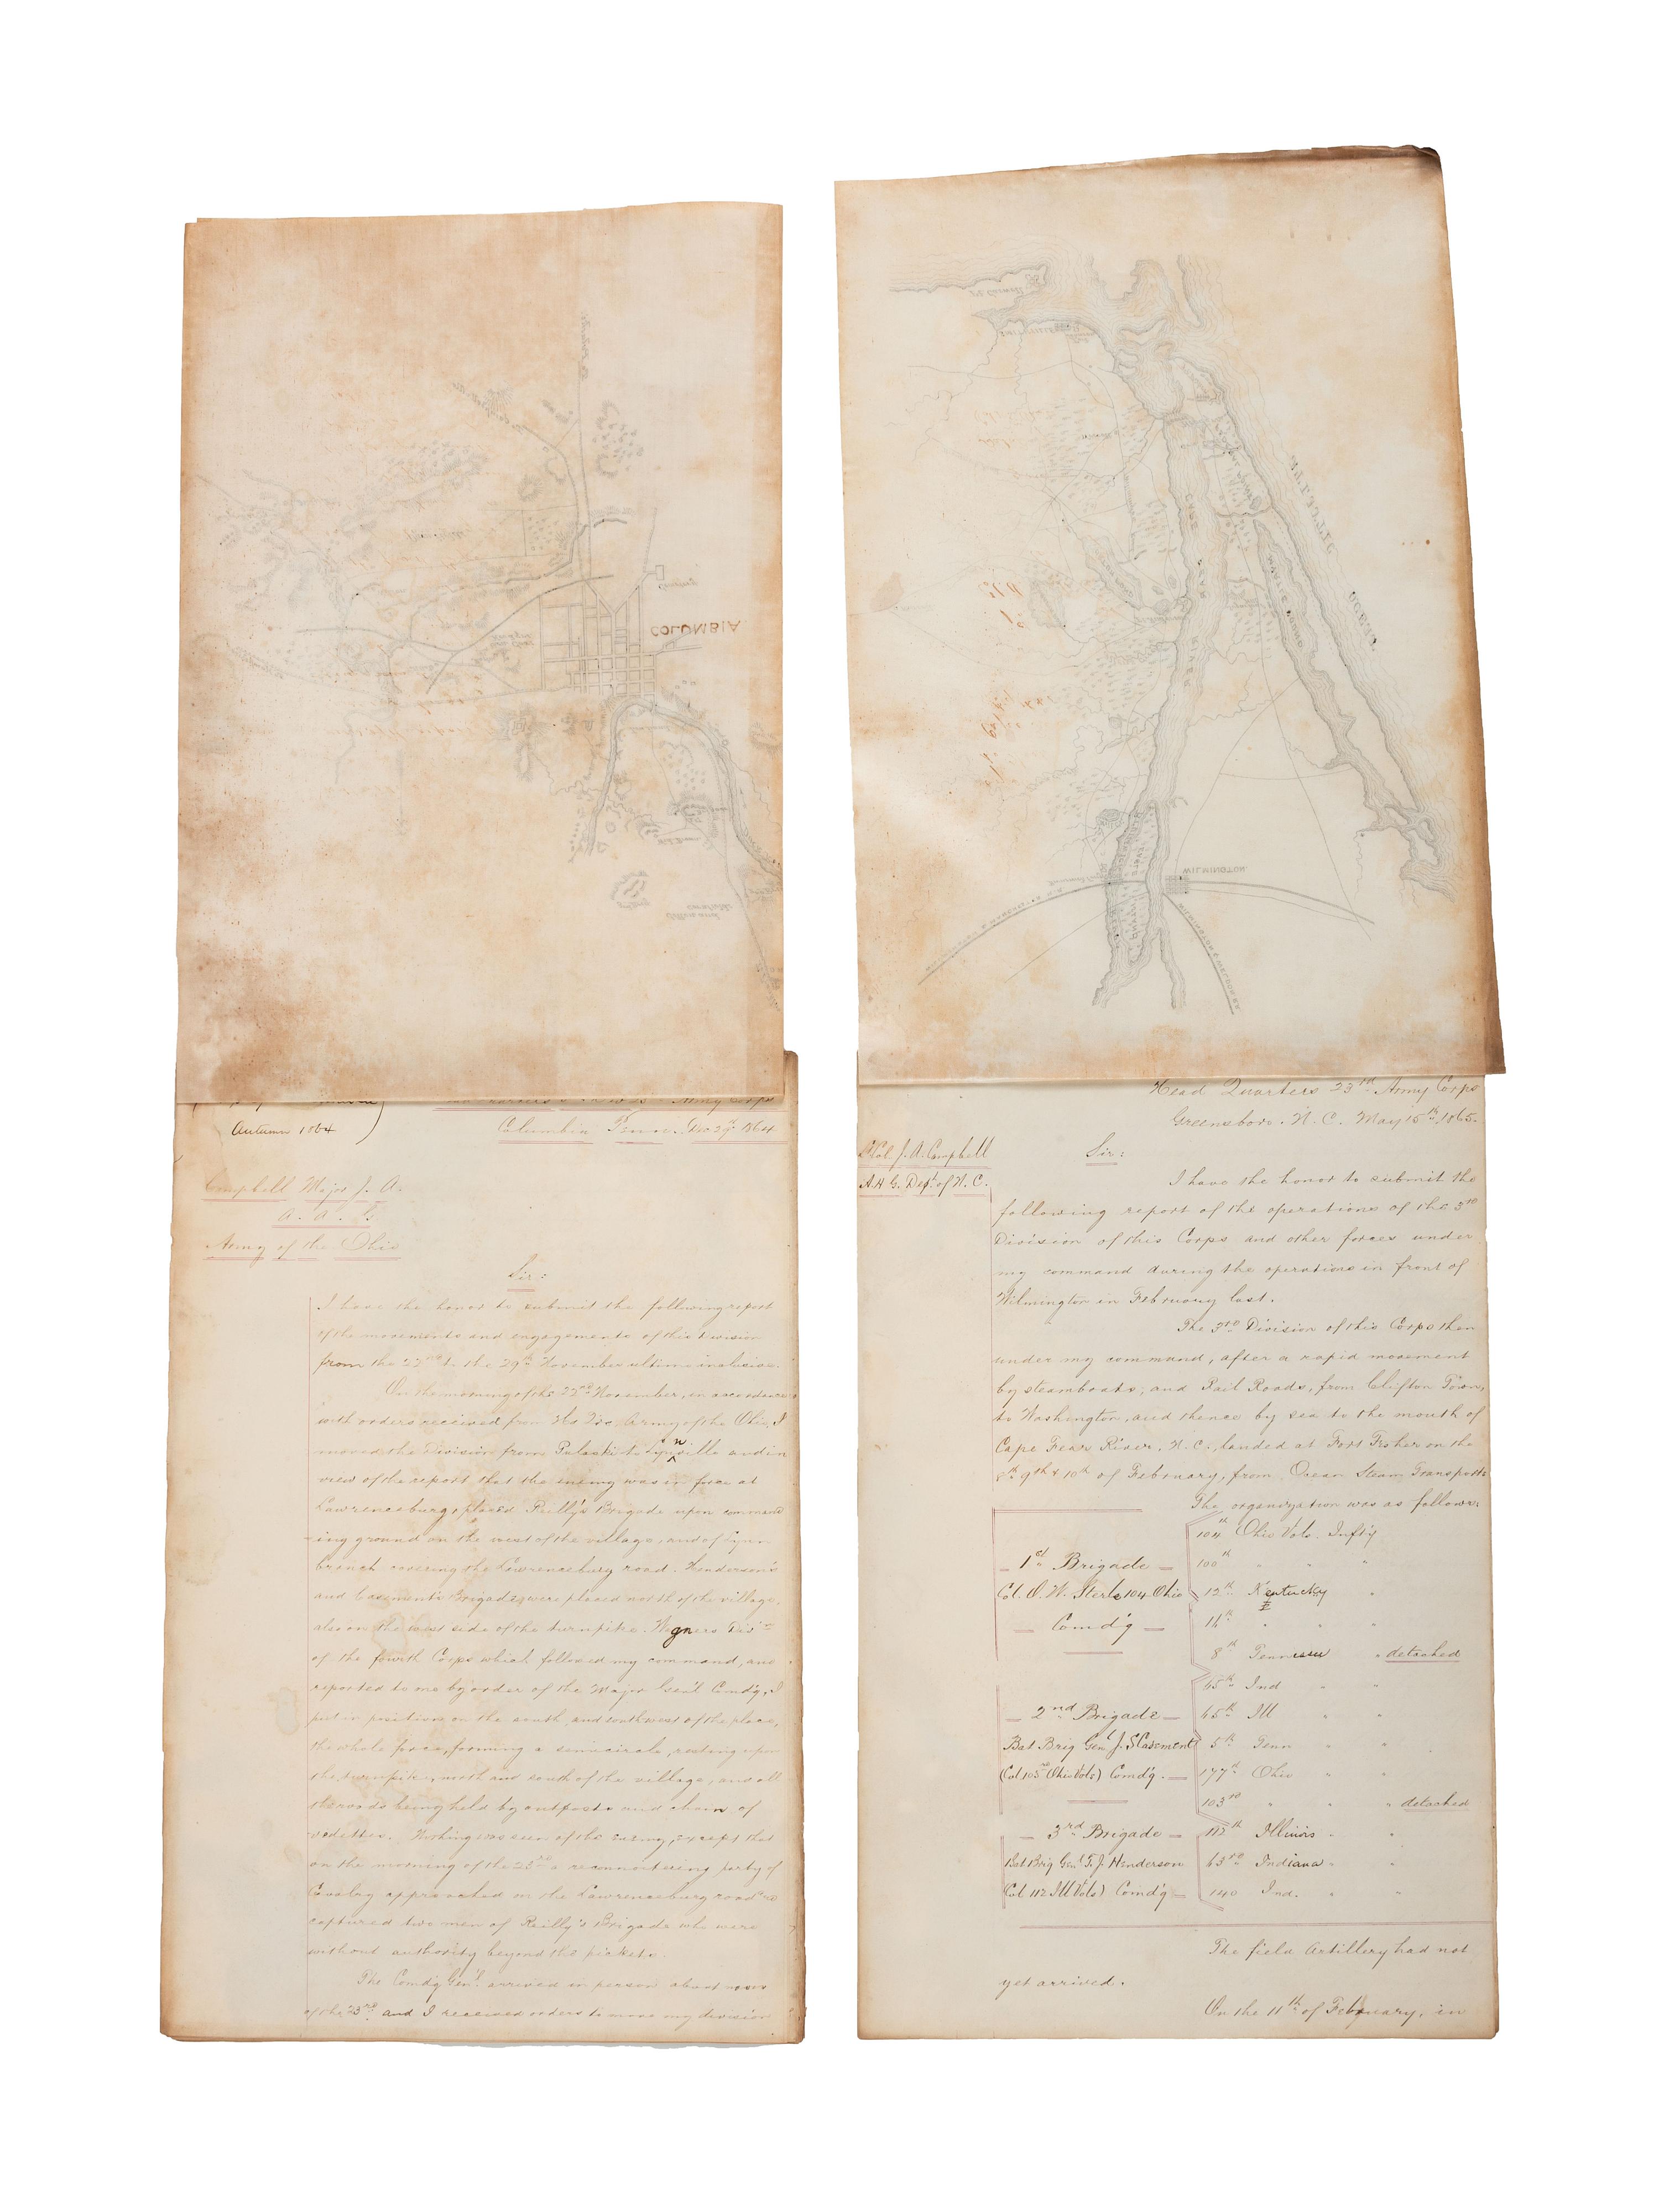 COLUMBIA
Autumn 1864
Columbia Tenn. Dec 29th 1864
Campbell Major J. A.
A. A. G.
Army of the Ohio
Sir:
I have the honor to submit the following report
of the movements and engagements of this Division
from the 22nd to the 29th November ultimo inclusive.
On the morning of the 22nd November, in accordance
with orders received from Hd Qrs. Army of the Ohio, I
moved the Division from Pulaski to Lynnville and in
view of the report that the enemy was in force at
Lawrenceburg, placed Reilly's Brigade upon command
ing ground on the west of the village, and of Lynn
branch covering the Lawrenceburg road. Henderson's
and Casement's Brigades were placed north of the village,
also on the west side of the turnpike. Wagners Divn
of the fourth Corps which followed my command, and
reported to me by order of the Major Gen'l Comd'g, I
put in position on the south and southwest of the place,
the whole force, forming a semicircle, resting upon
the turnpike, north and south of the village, and all
the roads being held by outposts and chain of
vedettes. Nothing was seen of the enemy, except that
on the morning of the 23rd a reconnoitering party of
Cavalry approached on the Lawrenceburg road and
captured two men of Reilly's Brigade who were
without authority beyond the pickets.
The Comd'g Gen'l. arrived in person about noon
of the 23rd and I received orders to move my division
ATLANTIC OCEAN
CAPE FEAR RIVER
WILMINGTON
Head Quarters 23rd Army Corps
Greensboro. N. C. May 15th 1865.
Lt Col. J. A. Campbell
A. A. G. Dept. of N. C.
Sir:
I have the honor to submit the
following report of the operations of the 3rd
Division of this Corps and other forces under
my command during the operations in front of
Wilmington in February last.
The 3rd Division of this Corps then
under my command, after a rapid movement
by steamboats, and Rail Roads, from Clifton Tenn,
to Washington, and thence by sea to the mouth of
Cape Fear River, N. C., landed at Fort Fisher on the
8th 9th & 10th of February, from Ocean Steam Transports
The organization was as follows:
104th Ohio Vols. Inft'y
1st Brigade 100th " " "
Col. O. W. Sterle 104 Ohio 12th Kentucky "
Comd'g 16th " " "
8th Tennessee " detached
65th Ind " "
2nd Brigade 65th Ill " "
Bat Brig Gen'l J. S Casement 5th Tenn " "
(Col 103rd Ohio Vols) Comd'g. 177th Ohio " "
103rd " " " detached
3rd Brigade 112th Illinois " "
Bat Brig Gen'l T. J. Henderson 63rd Indiana " "
(Col 112 Ill Vols) Comd'g 140 Ind. " "
The field Artillery had not
yet arrived.
On the 11th of February, in